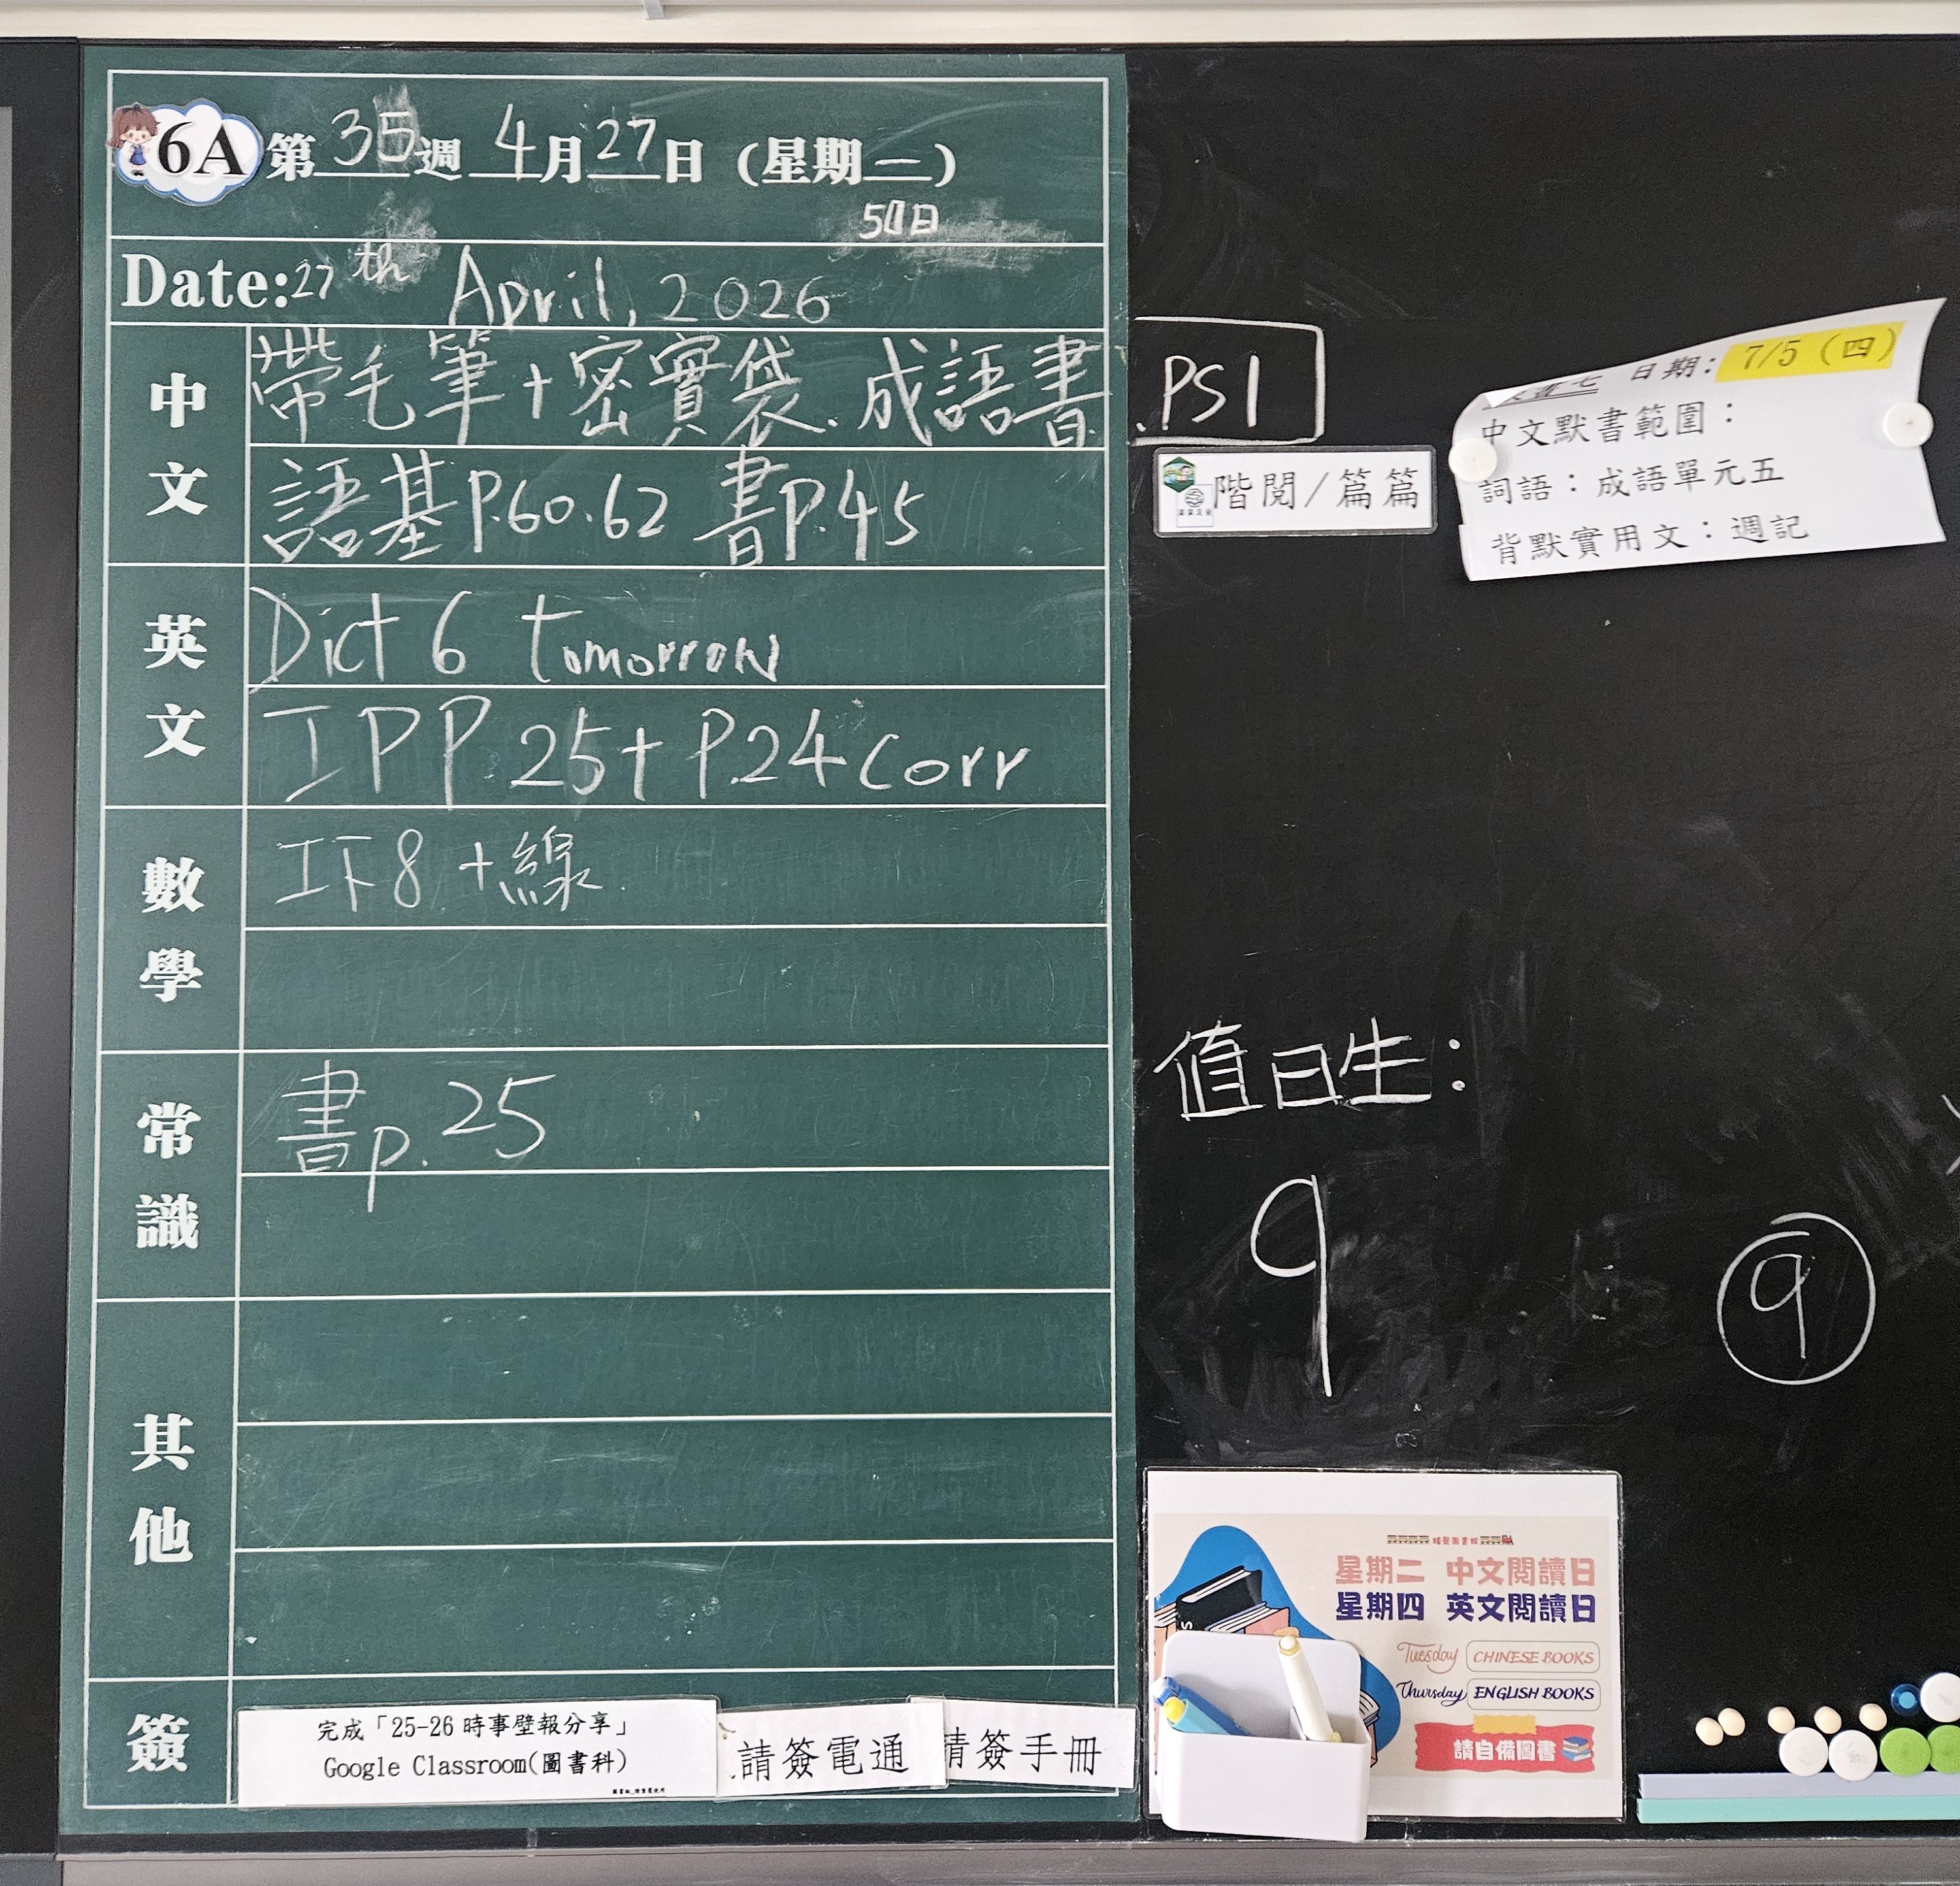 6A 第 35 週 4 月 27 日 (星期一)
50日
Date: 27th April, 2026
中文
帶毛筆+密實袋.成語書.PS1
語基P.60.62 書P.45
英文
Dict 6 tomorrow
IPP.25+P.24 Corr
數學
工下8+線
常識
書p.25
其他
簽
完成「25-26 時事壁報分享」
Google Classroom(圖書科)
請簽電通
請簽手冊
階閱/篇篇
日期: 7/5 (四)
中文默書範圍:
詞語:成語單元五
背默實用文:週記
值日生:
9
9
星期二 中文閱讀日
星期四 英文閱讀日
Tuesday CHINESE BOOKS
Thursday ENGLISH BOOKS
請自備圖書